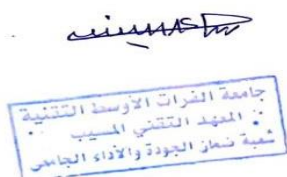 جامعة الفرات الأوسط التقنية
المعهد التقني المسيب
شعبة ضمان الجودة والأداء الجامعي